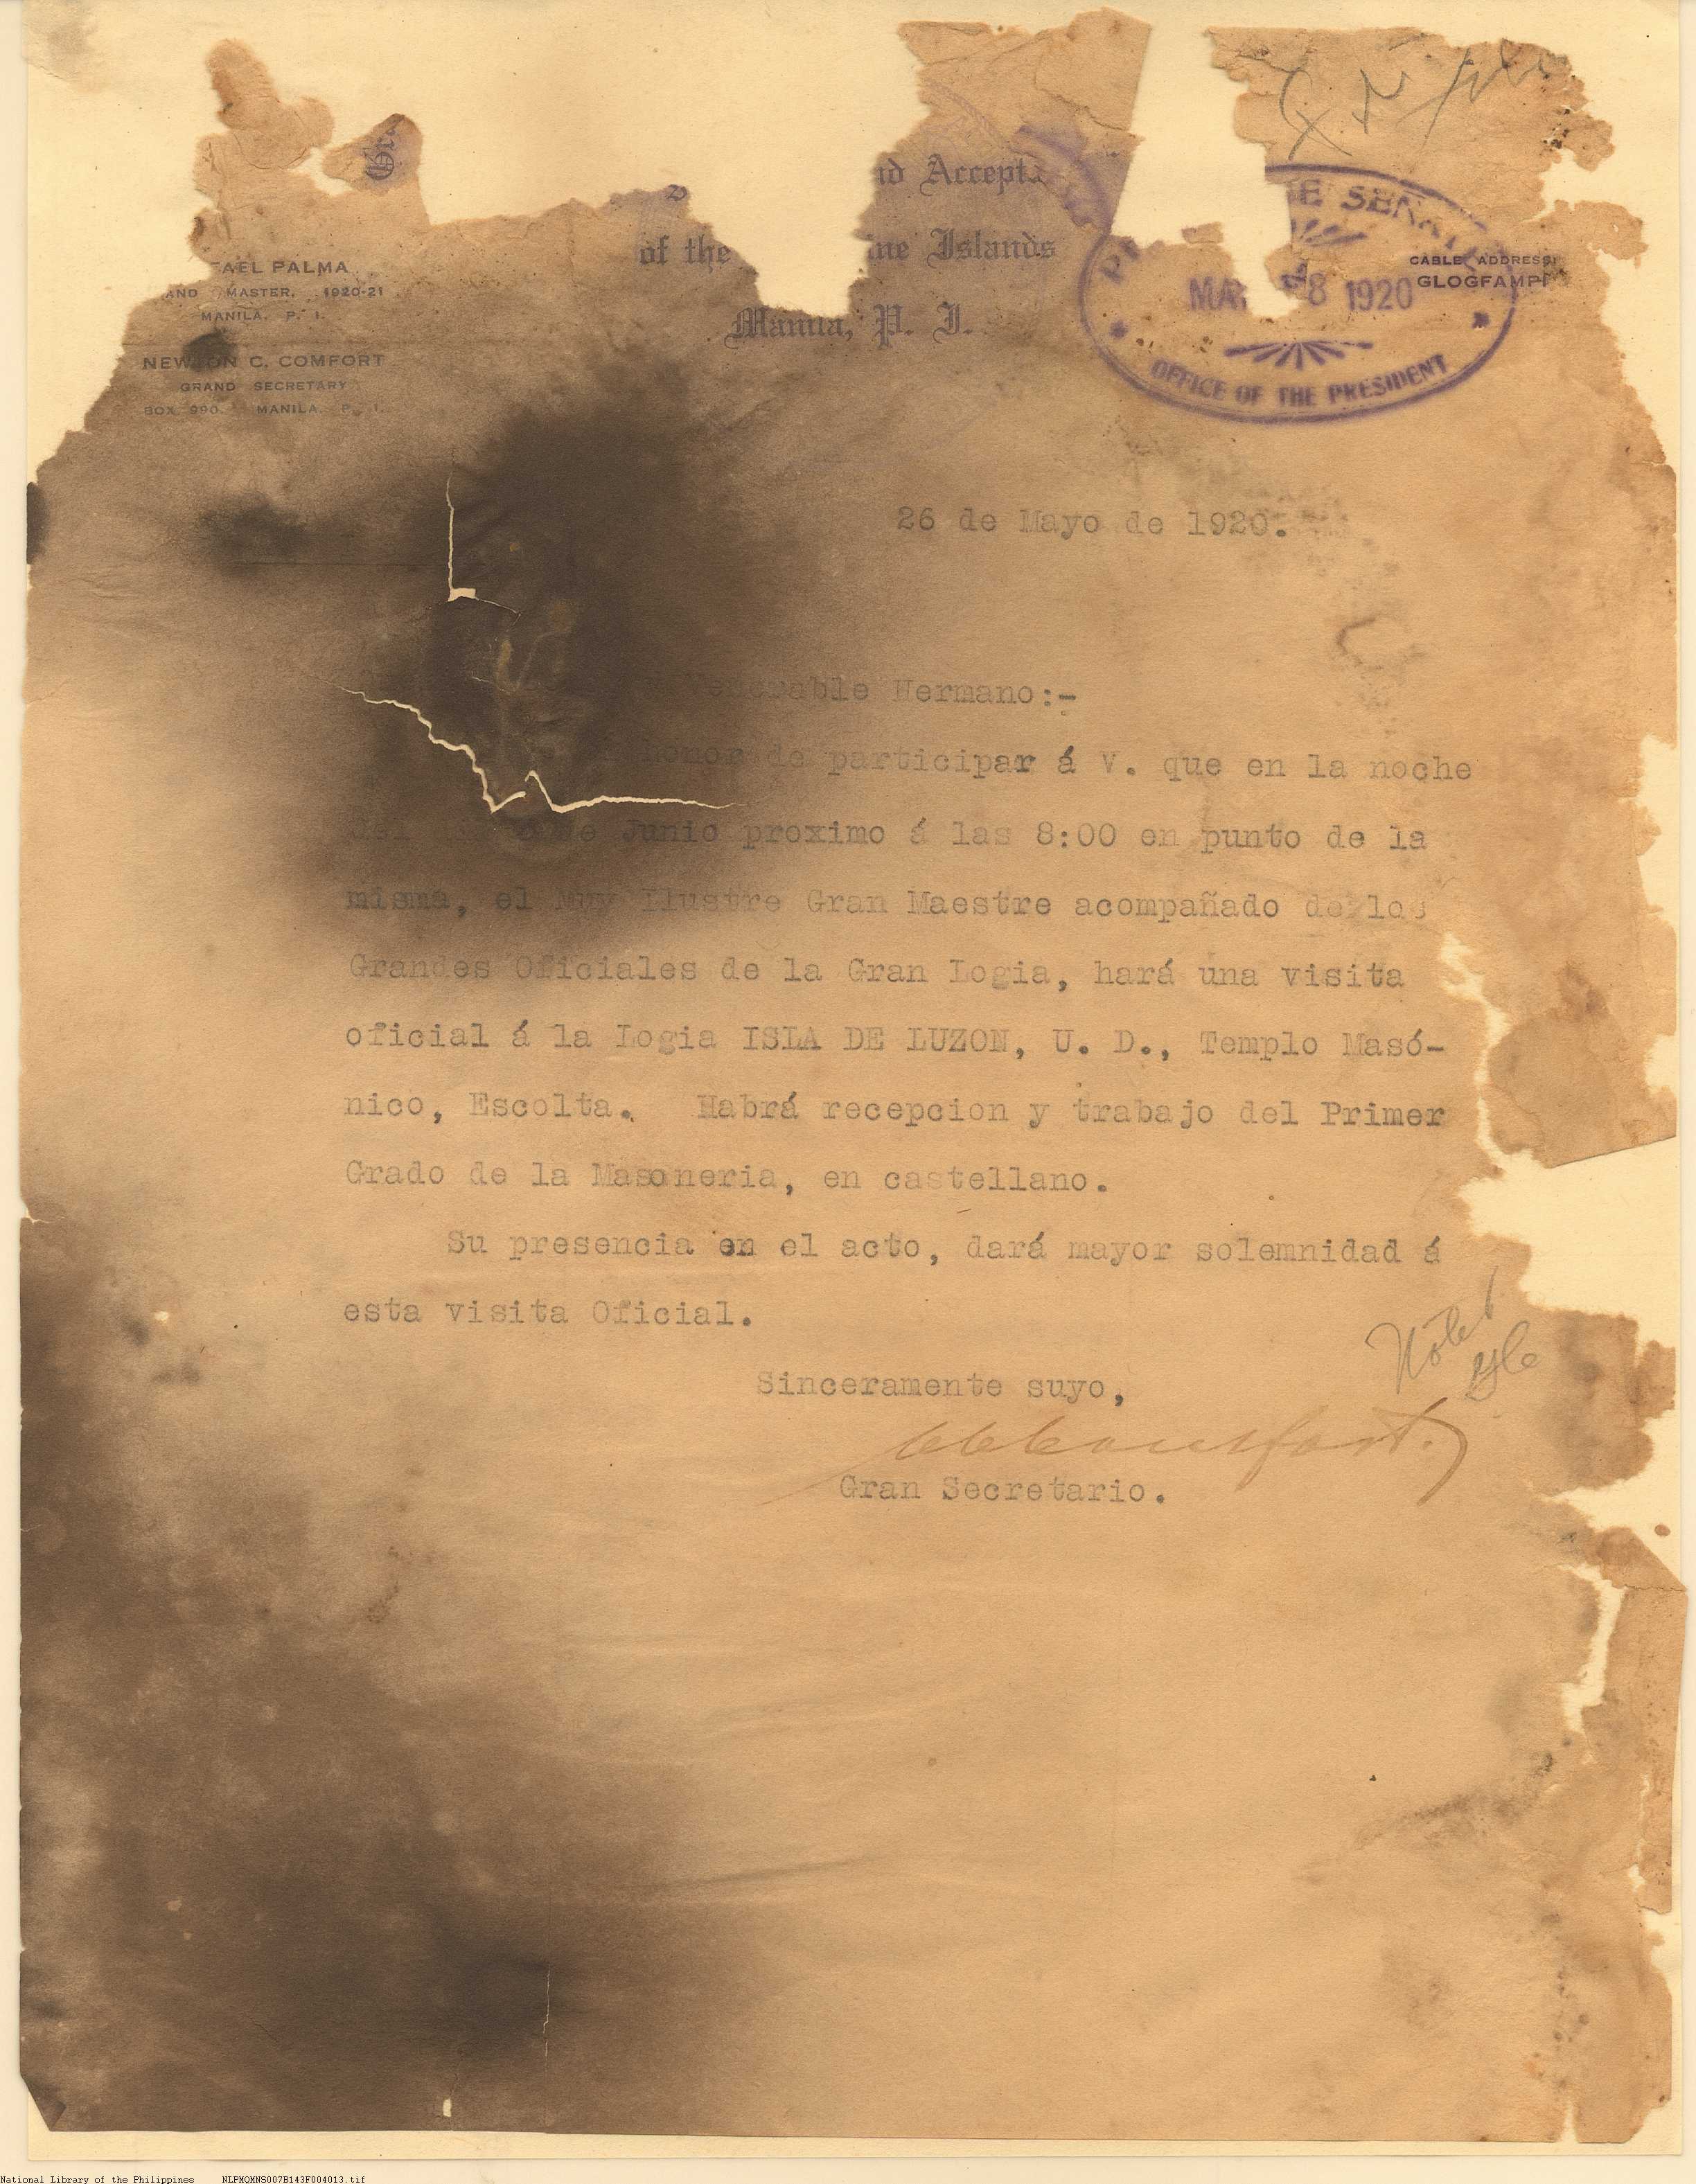 Accept
of the Islands
Manila, P. I.
PALMA
MASTER. 1920-21
MANILA. P. I.
NEWTON C. COMFORT
GRAND SECRETARY
BOX 990. MANILA. P. I.
THE SENATE
MAY 28 1920
OFFICE OF THE PRESIDENT
CABLE ADDRESS:
GLOGFAMPI
26 de Mayo de 1920.
Venerable Hermano:-
honor de participar á V. que en la noche
de Junio proximo á las 8:00 en punto de la
misma, el Muy Ilustre Gran Maestre acompañado de los
Grandes Oficiales de la Gran Logia, hará una visita
oficial á la Logia ISLA DE LUZON, U. D., Templo Masó-
nico, Escolta. Habrá recepcion y trabajo del Primer
Grado de la Masoneria, en castellano.
Su presencia en el acto, dará mayor solemnidad á
esta visita Oficial.
Noted
Sinceramente suyo,
Gran Secretario.
National Library of the Philippines NLPMQMNS007B143F004013.tif